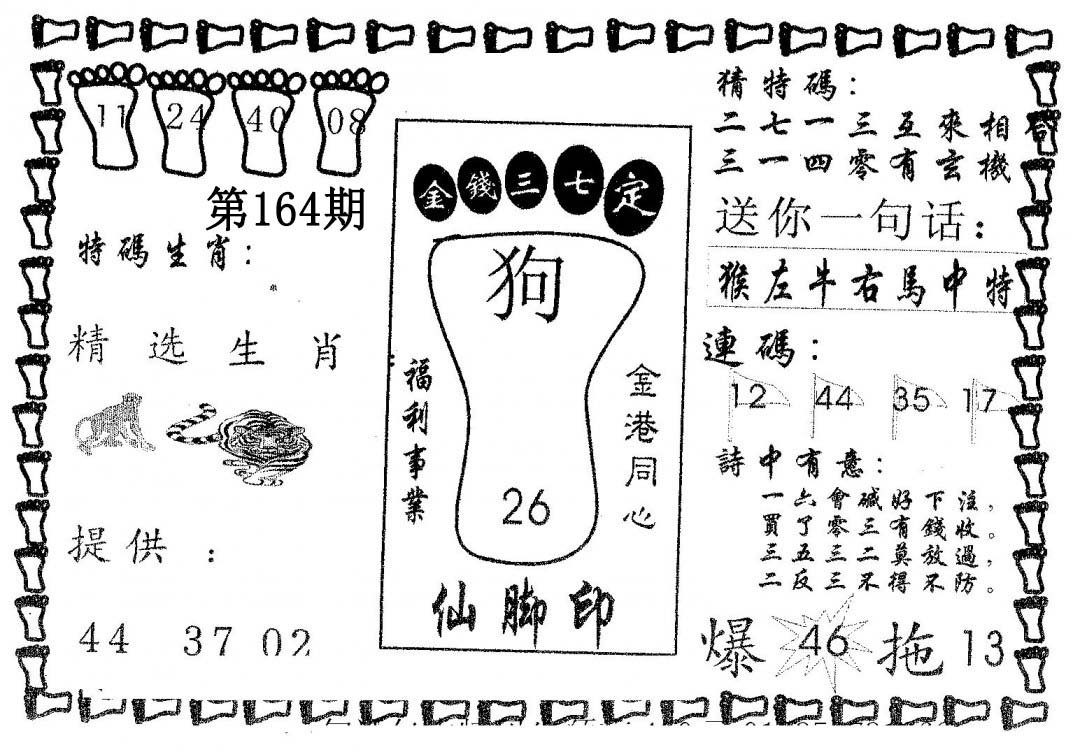 11 24 40 08
第164期
特碼生肖：
精选生肖
提供：
44 37 02
金錢三七定
狗
26
福利事業
金港同心
仙脚印
猜特碼：
二七一三五來相
三一四零有玄機
送你一句话：
猴左牛右馬中特
連碼：
12 44 35 17
詩中有意：
一六會碱好下注，
買了零三有錢收。
三五三二莫放過，
二反三不得不防。
爆 46 拖 13